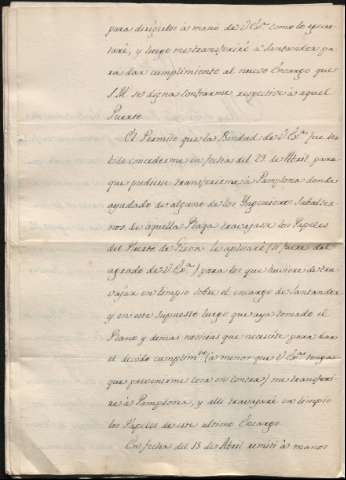 para dirigirlos à mano de V.Exª como lo ejecutaré, y luego me transferiré à Santander pa
ra dar cumplimiento al nuevo Encargo que
S.M. se digna confiarme respectivo à aquel
Puerto.
El Permiso que la Bondad de V.Exª fue ser
bida concederme en fecha del 29 de Abril para
que pudiese transferirme à Pamplona donde
ayudado de alguno de los Ingenieros Subalter
nos de aquella Plaza travajase los Papeles
del Puerto de
le aplicaré (si fuere del
agrado de V.Exª) para los que tuviere de tra
vajar en limpio sobre el encargo de Santander
y en este supuesto luego que aya tomado el
Plano y demas noticias que necesite para dar
el devido cumplimto (à menos que V.Exª tenga
que prevenirme cosa en contra) me transferi
re à Pamplona, y alli travajaré en limpio
los Papeles de este ultimo Encargo.
Con fecha del 18 de Abril remiti à manos